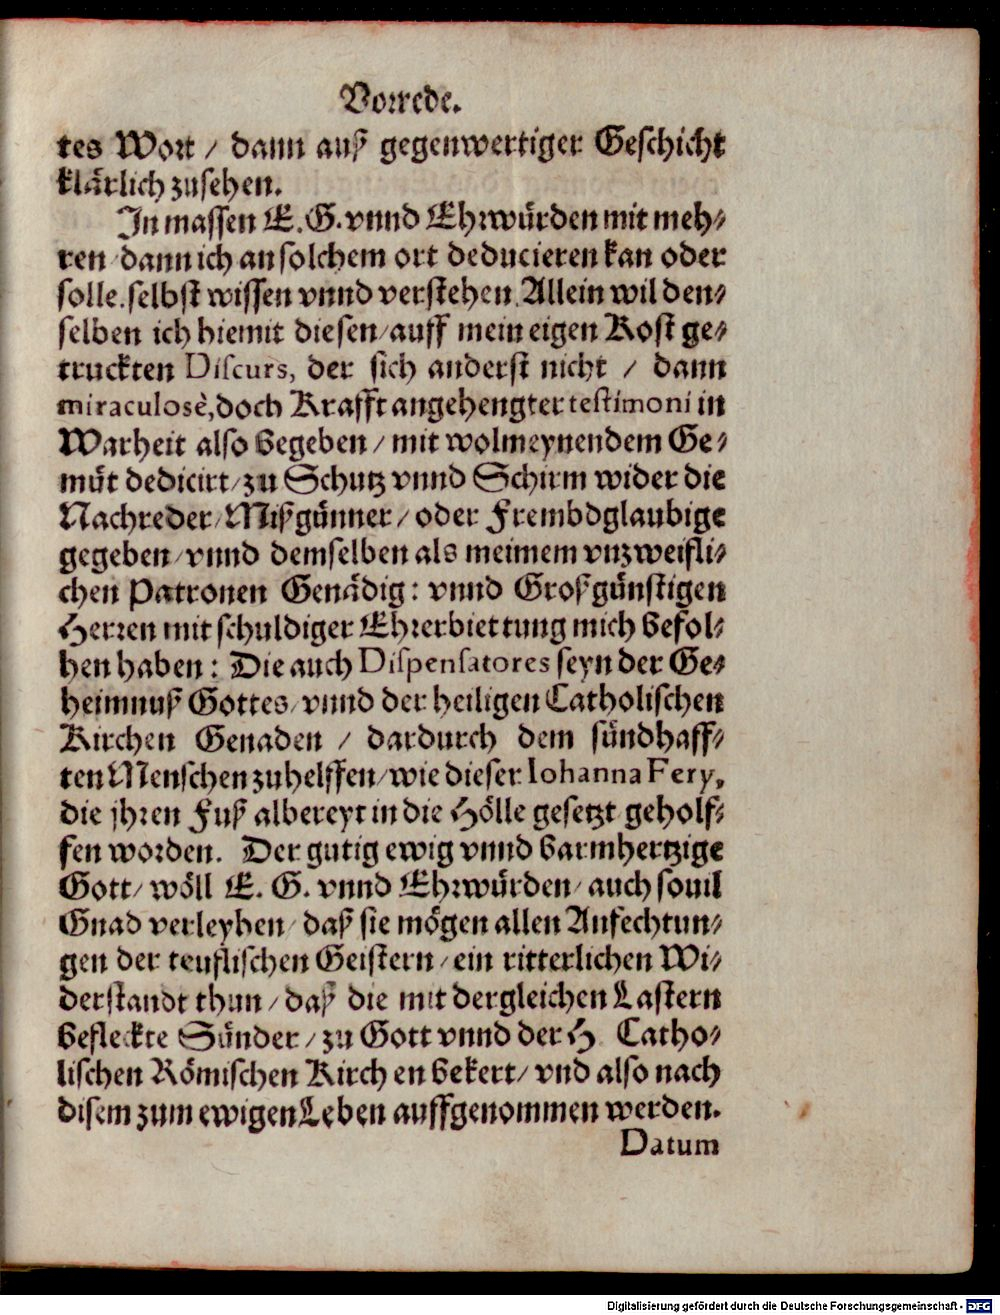 Vorrede.
tes Wort / dann auß gegenwertiger Geschicht
klärlich zusehen.
In massen E. G. vnnd Ehrwürden mit meh-
ren / dann ich an solchem ort deducieren kan oder
solle. selbst wissen vnnd verstehen. Allein wil den-
selben ich hiemit diesen / auff mein eigen Kost ge-
truckten Discurs, der sich anderst nicht / dann
miraculosè, doch Krafft angehengter testimoni in
Warheit also begeben / mit wolmeynendem Ge-
müt dedicirt / zu Schutz vnnd Schirm wider die
Nachreder / Mißgünner / oder Frembdglaubige
gegeben / vnnd demselben als meimem vnzweifli-
chen Patronen Genädig: vnnd Großgünstigen
Herren mit schuldiger Ehrerbiettung mich befol-
hen haben: Die auch Dispensatores seyn der Ge-
heimnuß Gottes / vnnd der heiligen Catholischen
Kirchen Genaden / dardurch dem sündhaff-
ten Menschen zuhelffen / wie dieser Iohanna Fery,
die jhren Fuß albereyt in die Hölle gesetzt geholf-
fen worden. Der gutig ewig vnnd barmhertzige
Gott / wöll E. G. vnnd Ehrwürden / auch souil
Gnad verleyhen / daß sie mögen allen Anfechtun-
gen der teuflischen Geistern / ein ritterlichen Wi-
derstandt thun / daß die mit dergleichen Lastern
befleckte Sünder / zu Gott vnnd der H. Catho-
lischen Römischen Kirch en bekert / vnd also nach
disem zum ewigen Leben auffgenommen werden.
Datum
Digitalisierung gefördert durch die Deutsche Forschungsgemeinschaft - DFG